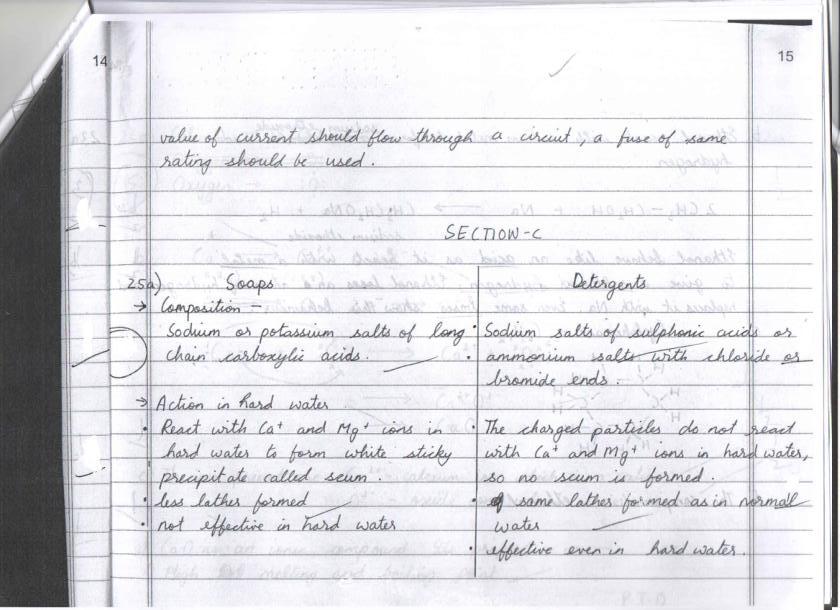 14
15
value of current should flow through a circiut, a fuse of same
rating should be used.
SECTION-C
25a) Soaps
→ Composition –
Sodium or potassium salts of long
chain carboxylic acids.
→ Action in hard water
• React with Ca⁺ and Mg⁺ ions in
hard water to form white sticky
precipitate called scum.
• less lather formed
• not effective in hard water
Detergents
• Sodium salts of sulphonic acids or
• ammonium salts with chloride or
bromide ends.
• The charged particles do not react
with Ca⁺ and Mg⁺ ions in hard water,
so no scum is formed.
• same lather formed as in normal
water
• effective even in hard water.